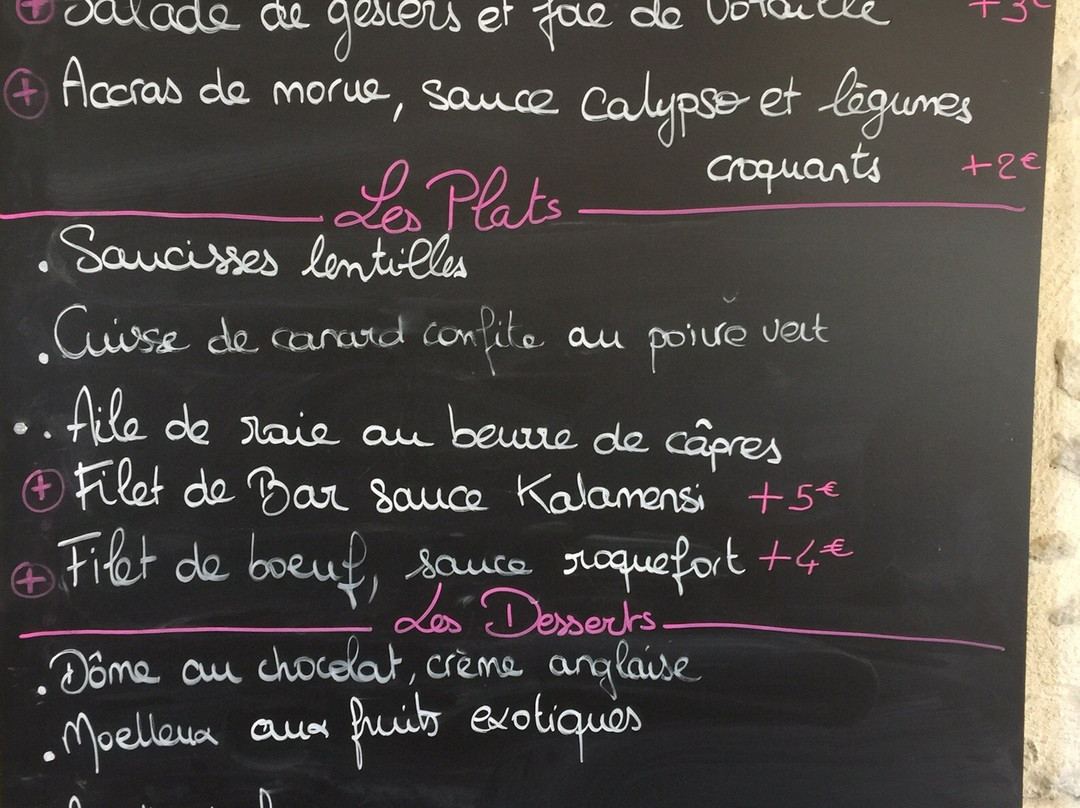 + Salade de gésiers et foie de volaille +3€
+ Accras de morue, sauce calypso et légumes
croquants +2€
Les Plats
. Saucisses lentilles
. Cuisse de canard confite au poivre vert
. Aile de raie au beurre de câpres
+ Filet de Bar sauce Kalamensi +5€
+ Filet de boeuf, sauce roquefort +4€
Les Desserts
. Dôme au chocolat, crème anglaise
. Moelleux aux fruits exotiques